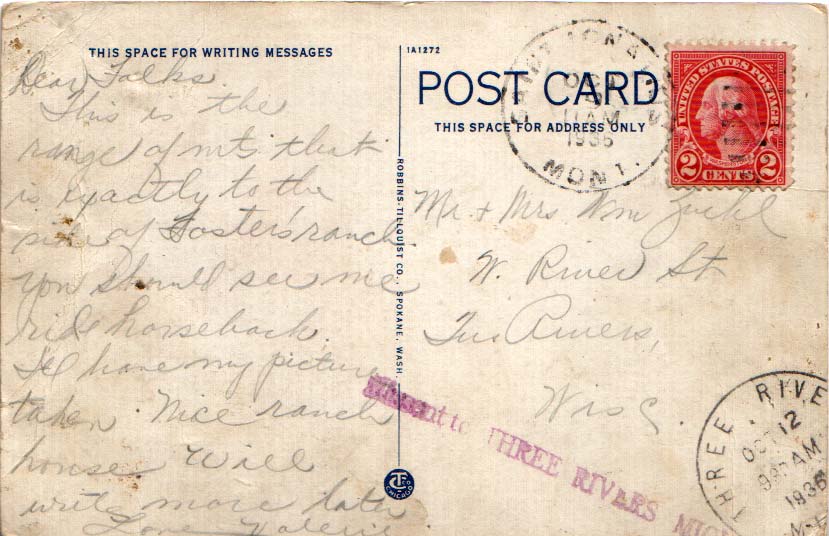 THIS SPACE FOR WRITING MESSAGES
Dear Folks
This is the
range of mts. that
is exactly to the
of Foster's ranch.
you should see me
ride horseback.
I'll have my picture
taken. Nice ranch
house. Will
write more later
Love Valerie
1A1272
POST CARD
THIS SPACE FOR ADDRESS ONLY
ROBBINS-TILLQUIST CO., SPOKANE, WASH.
CT CO
CHICAGO
SAINT IGNATIUS
OCT
11 AM
1936
MONT.
UNITED STATES POSTAGE
2 CENTS 2
Mr + Mrs Wm
W. River St
Two Rivers,
Wisc.
Missent to THREE RIVERS MICH
THREE RIVE
OCT 12
9 AM
1936